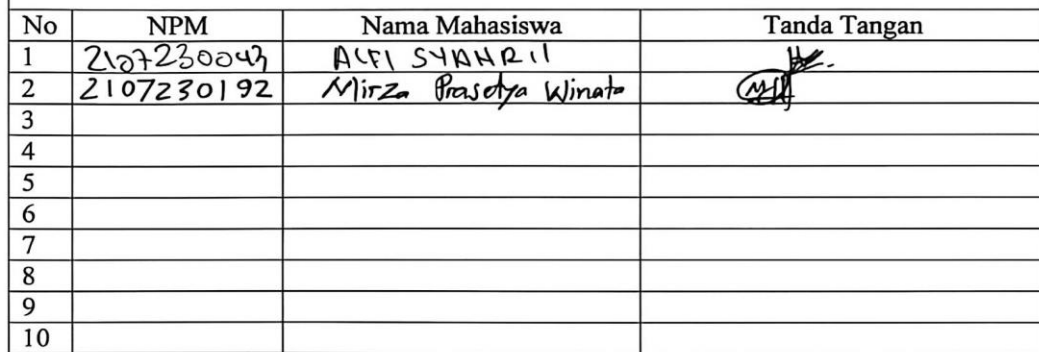 No NPM Nama Mahasiswa Tanda Tangan
1 2107230043 ALFI SYAHRIl
2 2107230192 Mirza Prasetya Winata
3
4
5
6
7
8
9
10